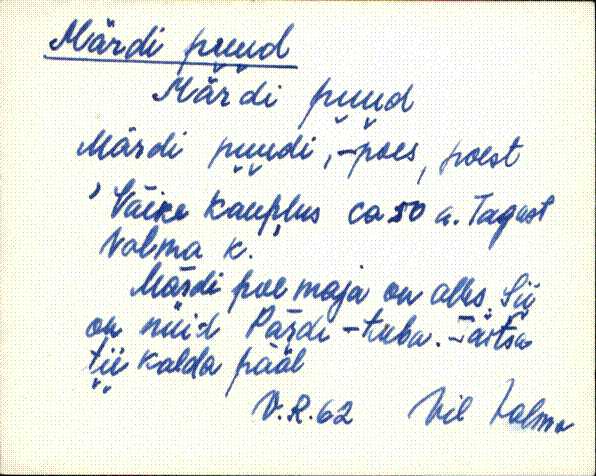 Märdi puud
Märdi puud
Märdi puudi, -poes, poest
'Väike kauplus ca 50 a. Tagast
Nolma k.'
Märdi poe maja on alles. Sii
on nüid Pärdi-tuba. Täitsa
tii kalda pääl
V.R. 62 Vil Nolma